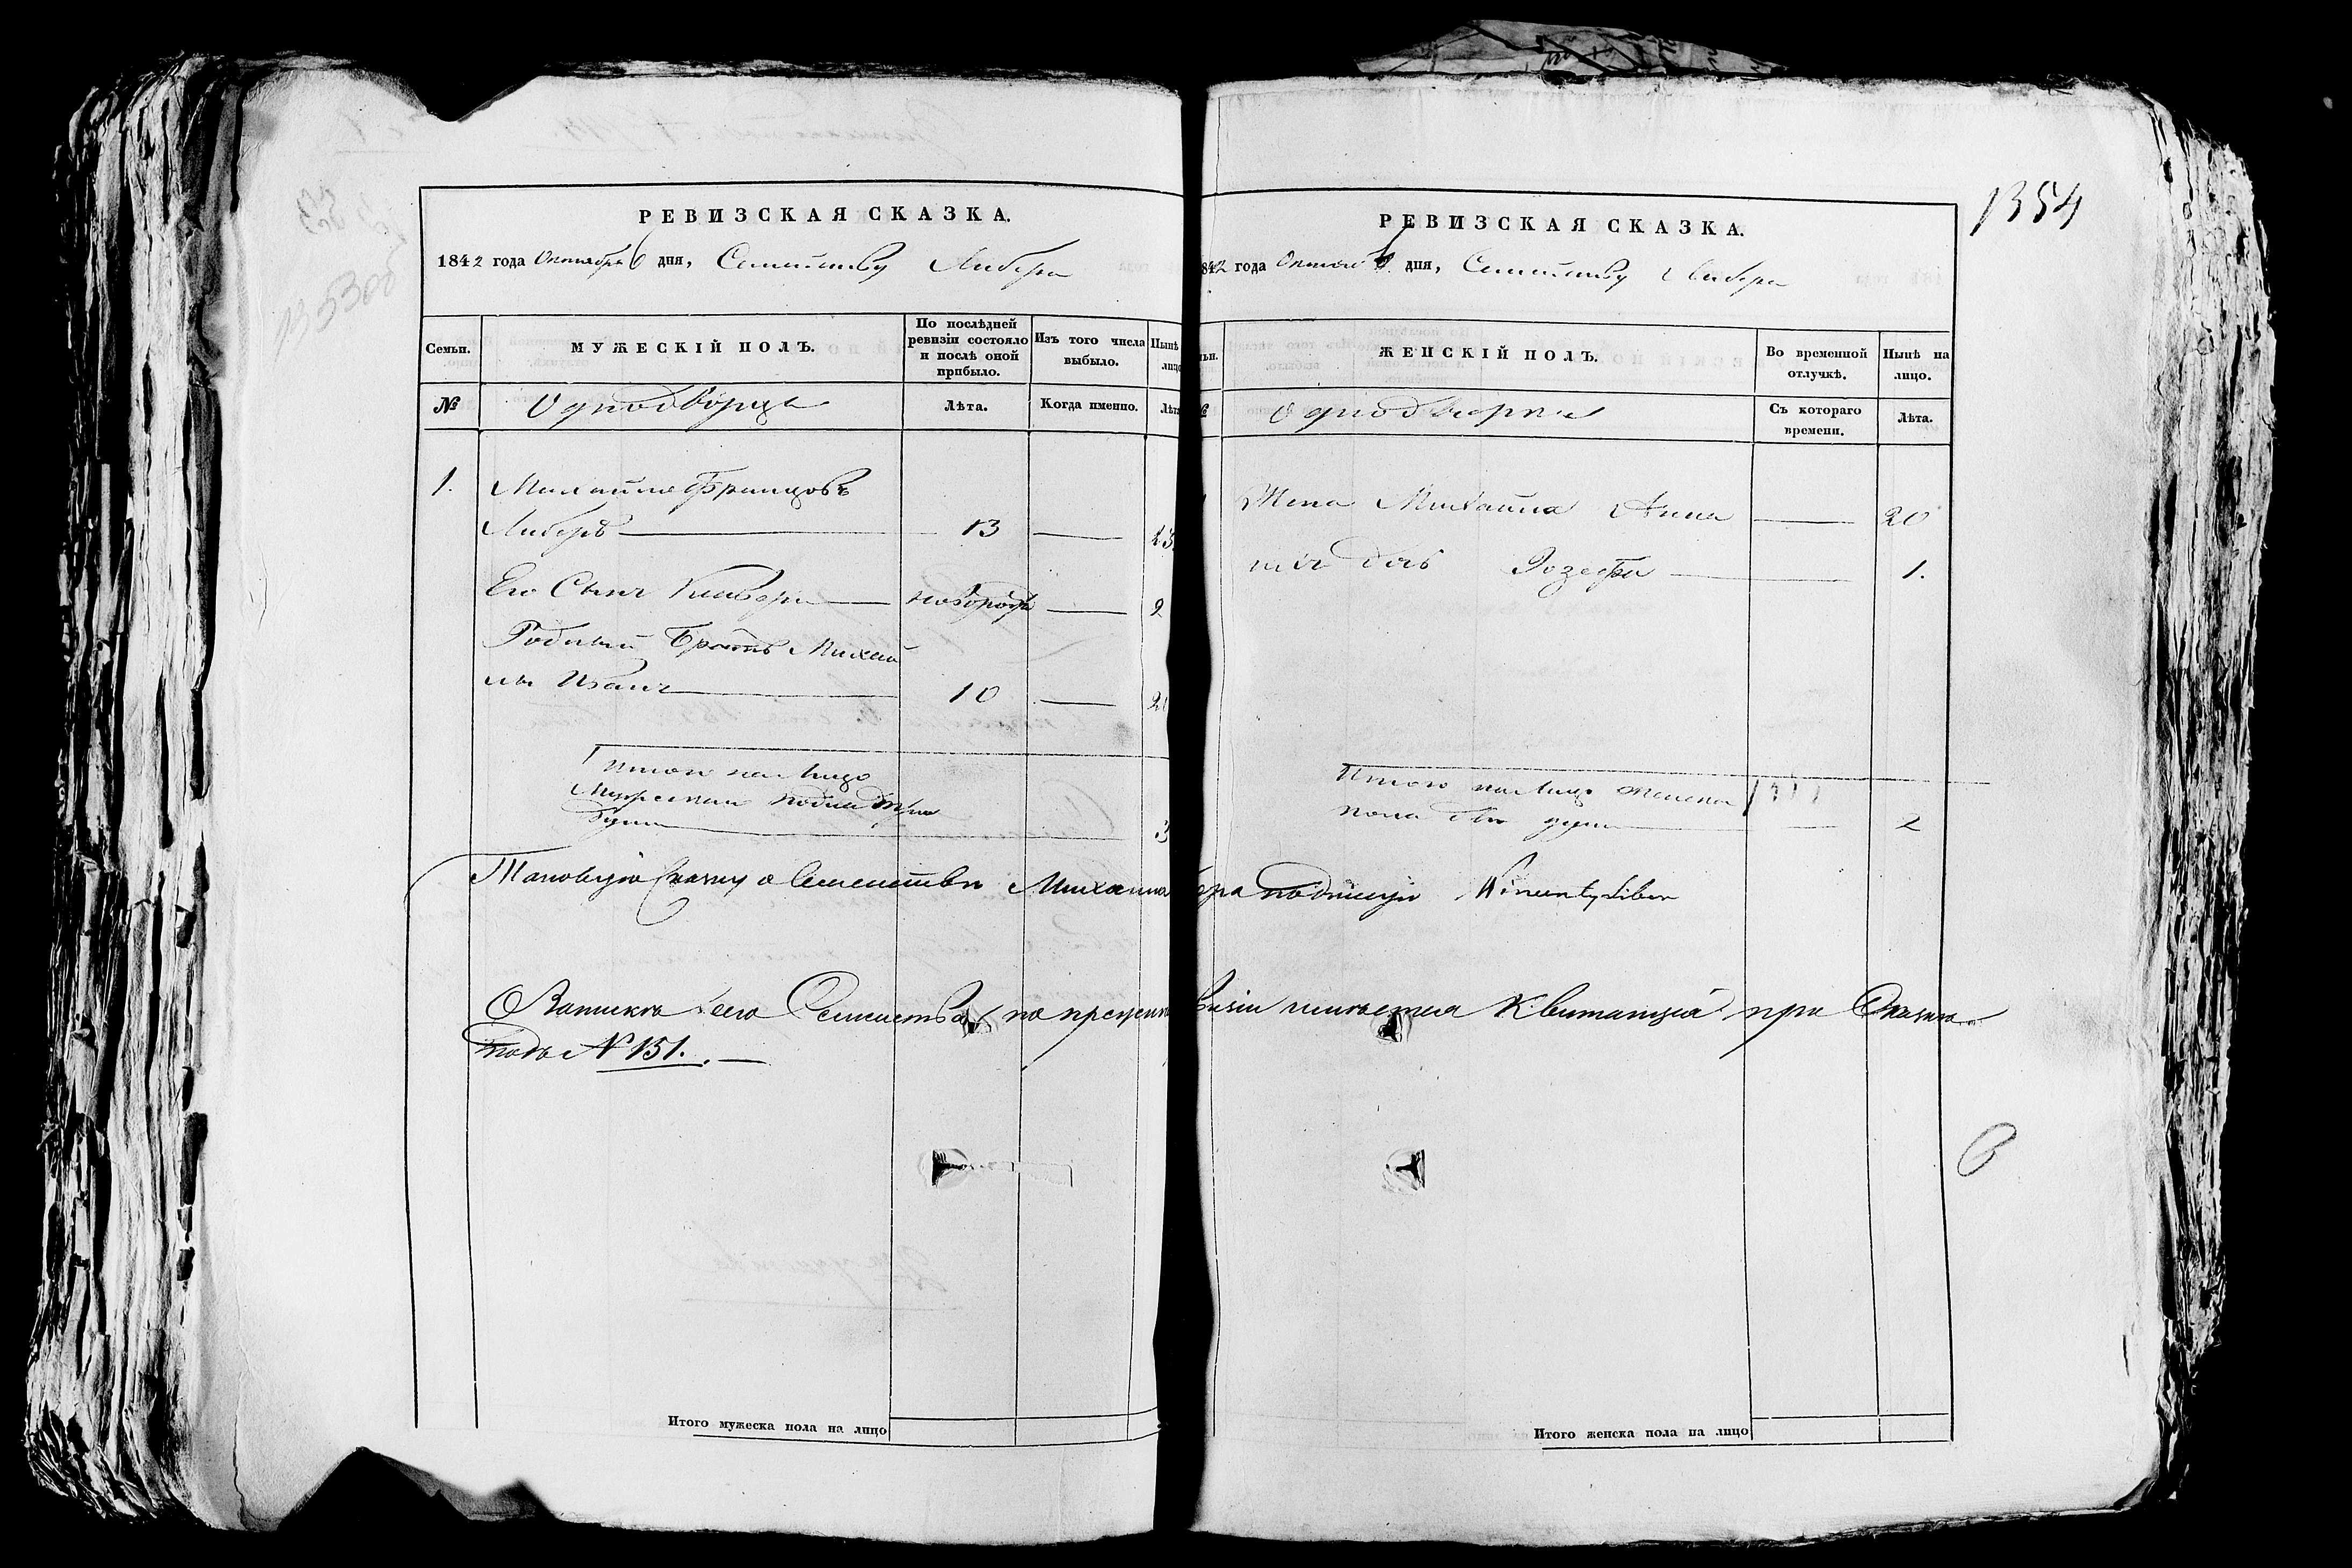 РЕВИЗСКАЯ СКАЗКА.
1842 года Октября 6 дня, Семейству Либера
Семьи.
МУЖЕСКІЙ ПОЛЪ.
По послѣдней
ревизіи состояло
и послѣ оной
прибыло.
Изъ того числа
выбыло.
Нынѣ
лицо
№
Однодворцы
Лѣта.
Когда именно.
Лѣта
1.
Михайло Францовъ
Либеръ 13 23
Его Сынъ новорожд 2
Родный Братъ Михай
лы Иванъ 10 20
Итого на лицо
Мужеска пола три
души 3
Таковую сказку о Семействѣ Михаила
О Запискѣ сего Семейства по прежней
подъ № 151.
Итого мужеска пола на лицо
1354
РЕВИЗСКАЯ СКАЗКА.
842 года Октяб 6 дня, Семейству Либера
ьи.
ЖЕНСКІЙ ПОЛЪ.
Во временной
отлучкѣ.
Нынѣ на
лицо.
Однодворки
Съ котораго
времени.
Лѣта.
Жена Михаила Анна 20
ихъ дочь Розефа 1.
Итого на лицо женска
пола двѣ души 2
бера подпишу Wincenty Liber
визіи имѣется Квитанція при Сказкѣ
Итого женска пола на лицо